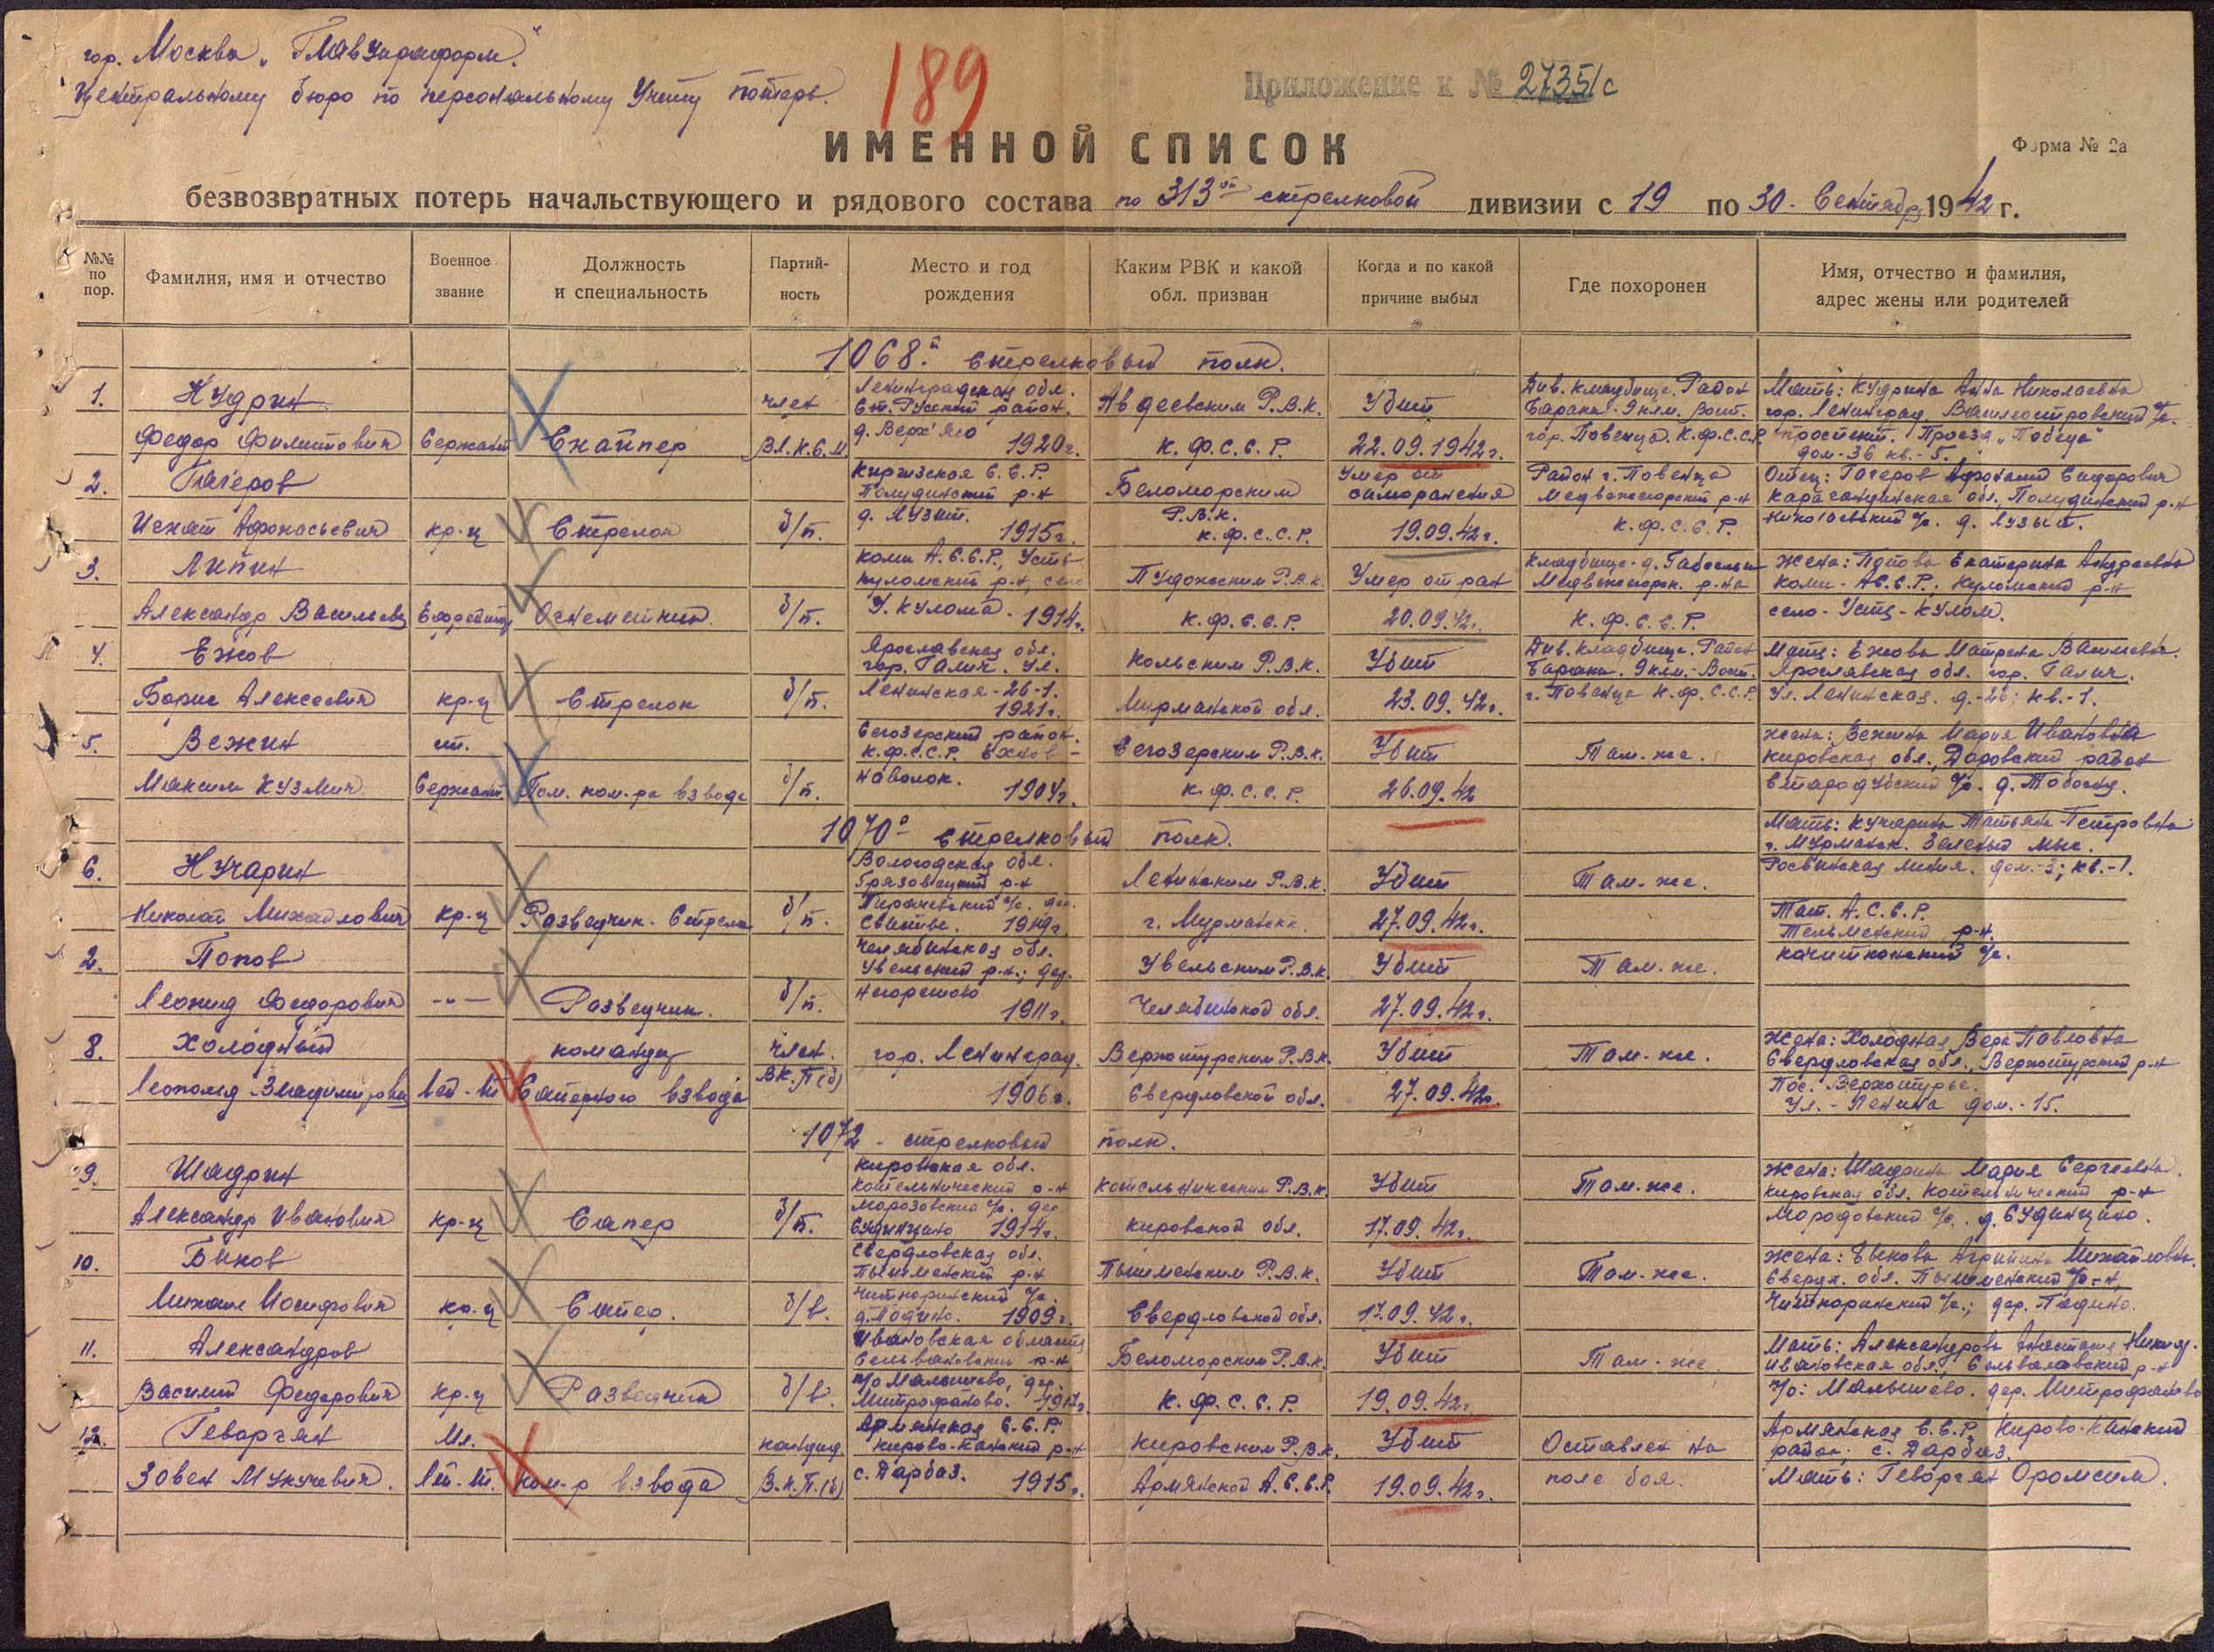 гор. Москва „Главупраформ."
Центральному бюро по персональному Учету потерь.
189
Приложение к № 27351с
ИМЕННОЙ СПИСОК
Форма № 2а
безвозвратных потерь начальствующего и рядового состава по 313ой стрелковой дивизии с 19 по 30. Сентябр 1942 г.
№№ по пор.
Фамилия, имя и отчество
Военное звание
Должность и специальность
Партий- ность
Место и год рождения
Каким РВК и какой обл. призван
Когда и по какой причине выбыл
Где похоронен
Имя, отчество и фамилия, адрес жены или родителей
1068й стрелковый полк.
1. Кудрин
Федор Филиппович Сержант Снайпер
член В.Л.К.С.М
Ленинградская обл.
Ст. Русский район.
1920г.
Авдеевским Р.В.К.
К.Ф.С.С.Р.
Убит
22.09.1942г.
Див. кладбище. Район
гор. Повенца. К.Ф.С.С.Р.
Мать: Кудрина Анна Николаевна
гор. Ленинград Василеостровский
проспект. Проезд „Победа"
дом-36 кв.-5.
2. Гагеров
Игнат Афонасьевич кр-ц Стрелок б/п.
Киргизская С.С.Р.
Полудинский р-н
1915г.
Беломорским
Р.В.К.
К.Ф.С.С.Р.
Умер от
19.09.42г.
Район г. Повенца
Медвежегорский р-н
К.Ф.С.С.Р.
Отец: Гагеров Сидорович
Карагандинская обл, Полудинский р-н
3. Липин
Александр Васильевич Ефрейтор Огнеметчик. б/п.
Коми А.С.С.Р., Усть
куломский р-н, село
У. Кулома. 1914г.
Пудожским Р.В.К.
К.Ф.С.С.Р.
Умер от ран
20.09.42г.
Кладбище д. Габсельга
Медвежегорск. р-на
К.Ф.С.С.Р.
Жена: Попова Екатерина Андреевна
Коми - А.С.С.Р., Куломский р-н
село - Усть - Кулом.
4. Ежов
Борис Алексеевич кр-ц Стрелок б/п.
Ярославская обл.
гор. Галич. Ул.
Ленинская-26-1.
1921г.
Кольским Р.В.К.
Мурманской обл.
Убит
23.09.42г.
Див. кладбище. Район
г. Повенца К.Ф.С.С.Р.
Мать: Ежова Матрена Васильевна.
Ярославская обл. гор. Галич.
Ул. Ленинская. д.-26; кв.-1.
5. Вежин
Максим Кузьмич ст. Сержант Пом. ком-ра взвода б/п.
Сегозерский район.
К.Ф.С.С.Р.
наволок. 1904г.
Сегозерским Р.В.К.
К.Ф.С.С.Р.
Убит
26.09.42
Там-же.
Жена: Вежина Мария Ивановна
Кировская обл. Даровский район
1070й стрелковый полк.
6. Кучарин
Николай Михайлович кр-ц Разведчик-Стрелок б/п.
Вологодская обл.
Грязовецкий р-н
1919г.
Ленинским Р.В.К.
г. Мурманска.
Убит
27.09.42г.
Там-же.
Мать: Кучарина Татьяна Петровна
г. Мурманск. Зеленый мыс.
Роствинская линия. дом.-3; кв.-1.
7. Попов
Леонид Федорович -"- Разведчик. б/п.
Челябинская обл.
Увельский р-н; дер.
1911г.
Увельским Р.В.К.
Челябинской обл.
Убит
27.09.42г.
Там-же.
Тат. А.С.С.Р.
Тельменский р-н.
8. Холодный
Леонид Владимирович Лей-т командир Саперного взвода
член. В.К.П(б)
гор. Ленинград.
1906г.
Верхотурским Р.В.К.
Свердловской обл.
Убит
27.09.42г.
Там-же.
Жена: Холодная Вера Павловна
Свердловская обл., Верхотурский р-н
Пос. Верхотурье.
Ул.-Ленина дом.-15.
1072 - стрелковый полк.
9. Шадрин
Александр Иванович кр-ц Сапер б/п.
Кировская обл.
Котельнический р-н
1914г.
Котельническим Р.В.К.
Кировской обл.
Убит
17.09.42г.
Там-же.
Жена: Шадрина Мария Сергеевна.
Кировская обл. Котельнический р-н
10. Быков
Михаил Иосифович кр-ц Сапер. б/п.
Свердловская обл.
Пышменский р-н
1909г.
Пышменским Р.В.К.
Свердловской обл.
Убит
17.09.42г.
Там-же.
Жена: Быкова Агрипина Михайловна.
Сверд. обл. Пышменский р-н
11. Александров
Василий Федорович кр-ц Разведчик б/п.
Ивановская область
Селивановский р-н
с/о Малышево, дер.
Митрофаново.
Беломорским Р.В.К.
К.Ф.С.С.Р.
Убит
19.09.42г.
Там-же
Мать: Александрова
Ивановская обл., Селивановский р-н
с/о: Малышево. дер. Митрофаново
12. Геворгян
Зовен Мукучевич. Мл. Лей-т. ком-р взвода
кандид. В.К.П.(б)
Армянская С.С.Р.
Кирово-Канский р-н
с. Дарбаз. 1915г.
Кировским Р.В.К.
Армянской А.С.С.Р.
Убит
19.09.42г.
Оставлен на
поле боя.
Армянская С.С.Р. Кирово-Канский
район; с. Дарбаз.
Мать: Геворгян Оромсим.